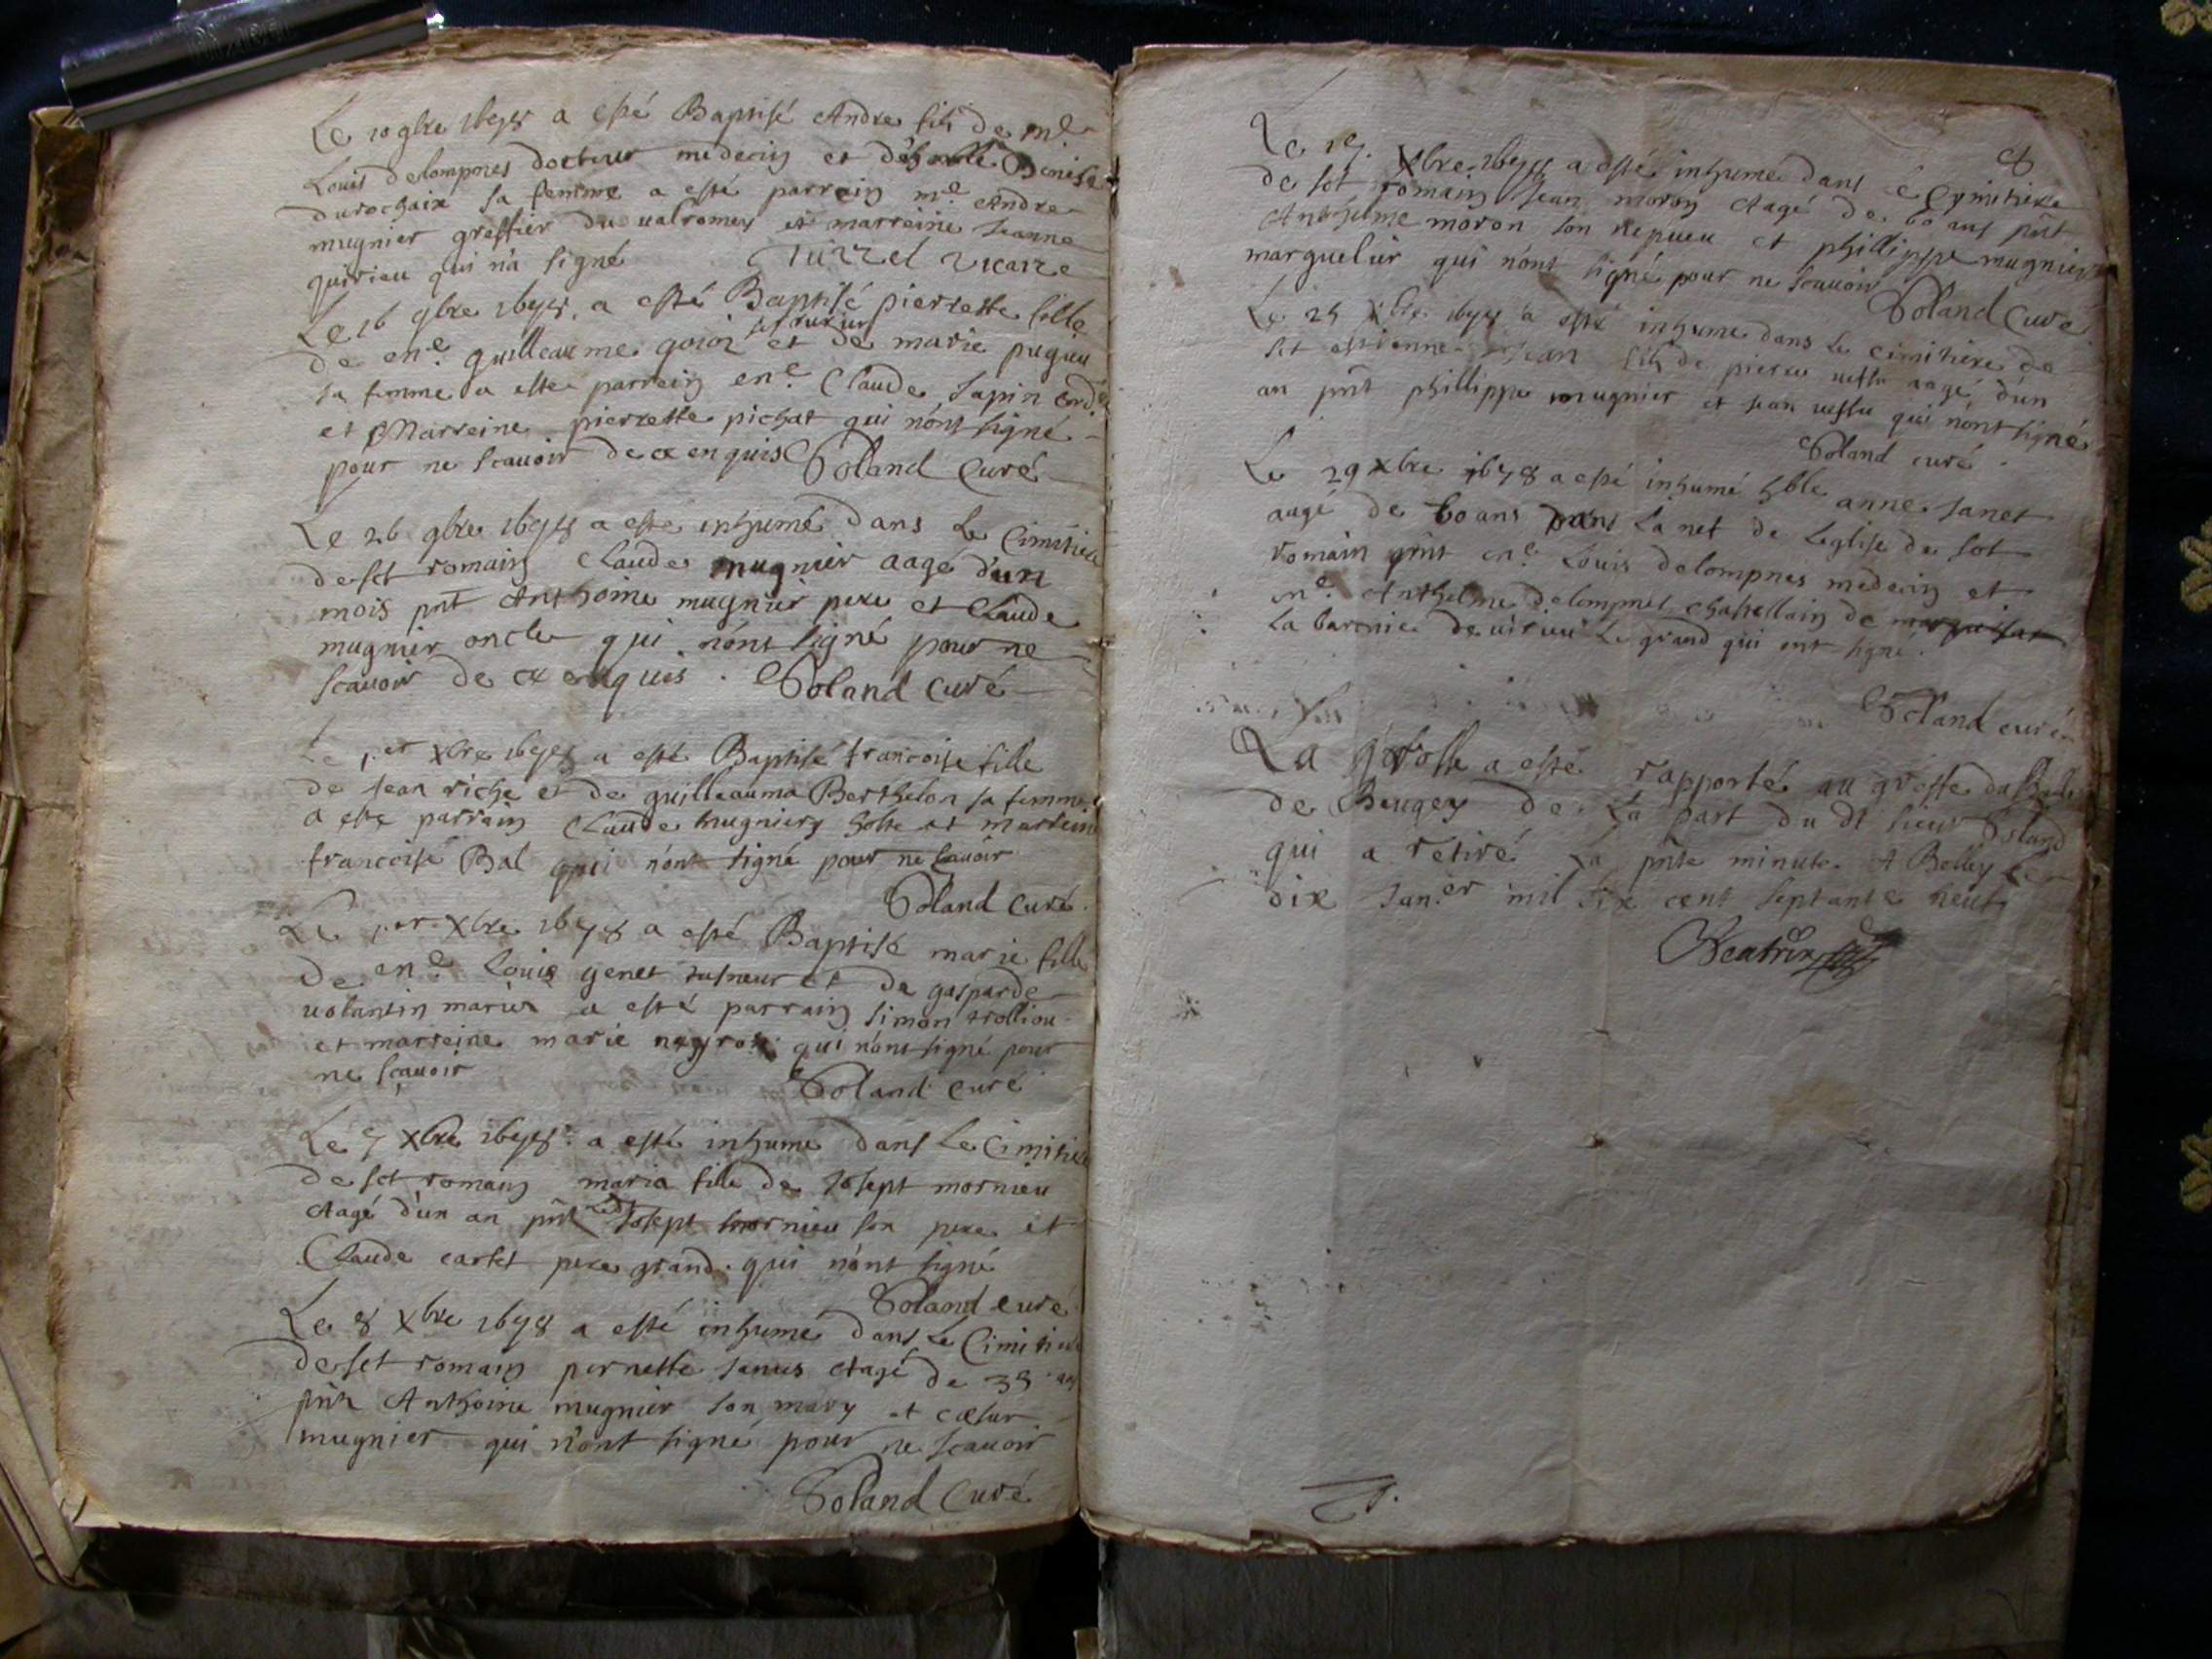 Le 10 9bre 1678 a esté Baptisé Andre fils de me
Louis delompnes docteur medecin et Benoiste
durochaix sa femme a esté parrein me Andre
mugnier greffier du ualromey et marreine Jeanne
quirieu qui n'a signé vicaire
Le 16 9bre 1678 a esté Baptisé pierrette fille
serrurier
de en.e guilleaume et de marie pugieu
sa femme a esté parrein en.e Claude Sapin
et Marreine pierrette pichat qui n'ont signé
pour ne scauoir de ce enquis Poland Curé
Le 26 9bre 1678 a esté inhumé dans le Cimitiere
de sct romain Claude mugnier aagé d'un
mois pnt Anthoine mugnier pere et Claude
mugnier oncle qui n'ont signé pour ne
scauoir de ce enquis. Poland Curé
Le 1.er Xbre 1678 a esté Baptisé francoise fille
de Jean riche et de guilleauma Berthelon sa femme
a esté parrain Claude hugniery et marreine
francoise Bal qui n'ont signé pour ne scauoir
Poland Curé
Le 1.er Xbre 1678 a esté Baptisé marie fille
de en.e Louis genet et de gasparde
uolantin mariés a esté parrain Simon trolliou
et marreine marie qui n'ont signé pour
ne scauoir Poland Curé
Le 7 Xbre 1678 a esté inhumé dans le Cimitiere
de sct romain maria fille de Josept mornieu
Aagé d'un an pnt Josept mornieu son pere et
Claude carlet pere grand qui n'ont signé
Poland Curé
Le 8 Xbre 1678 a esté inhumé dans le Cimitiere
de sct romain pernette Aagé de 35 ans
pnt Anthoine mugnier son mary et
mugnier qui n'ont signé pour ne scauoir
Poland Curé
Le 17. Xbre 1678 a esté inhumé dans le Cymitiere
de sct romain Jean moron Aagé de 60 ans pnt
Anthelme moron son nepueu et phillippe mugnier
marguelier qui n'ont signé pour ne scauoir
Poland Curé
Le 25 Xbre 1678 a esté inhumé dans le cimitiere de
sct estienne Jean fils de pierre aagé d'un
an pnt phillippe mugnier et Jean qui n'ont signé
Poland curé
Le 29 Xbre 1678 a esté inhumé hble anne Janet
aagé de 60 ans dans la nef de Leglise de sct
romain pnt en.e Louis delompnes medecin et
me Anthelme delompnes chastellain de
la baronie de uirieu le grand qui ont signé.
Poland curé
La grosse a esté rapportée au greffe du Bal
de Beugey de la part du dt sieur Poland
qui a retiré la pnte minute. A Belley le
dix Jan.er mil six cent septante neuf